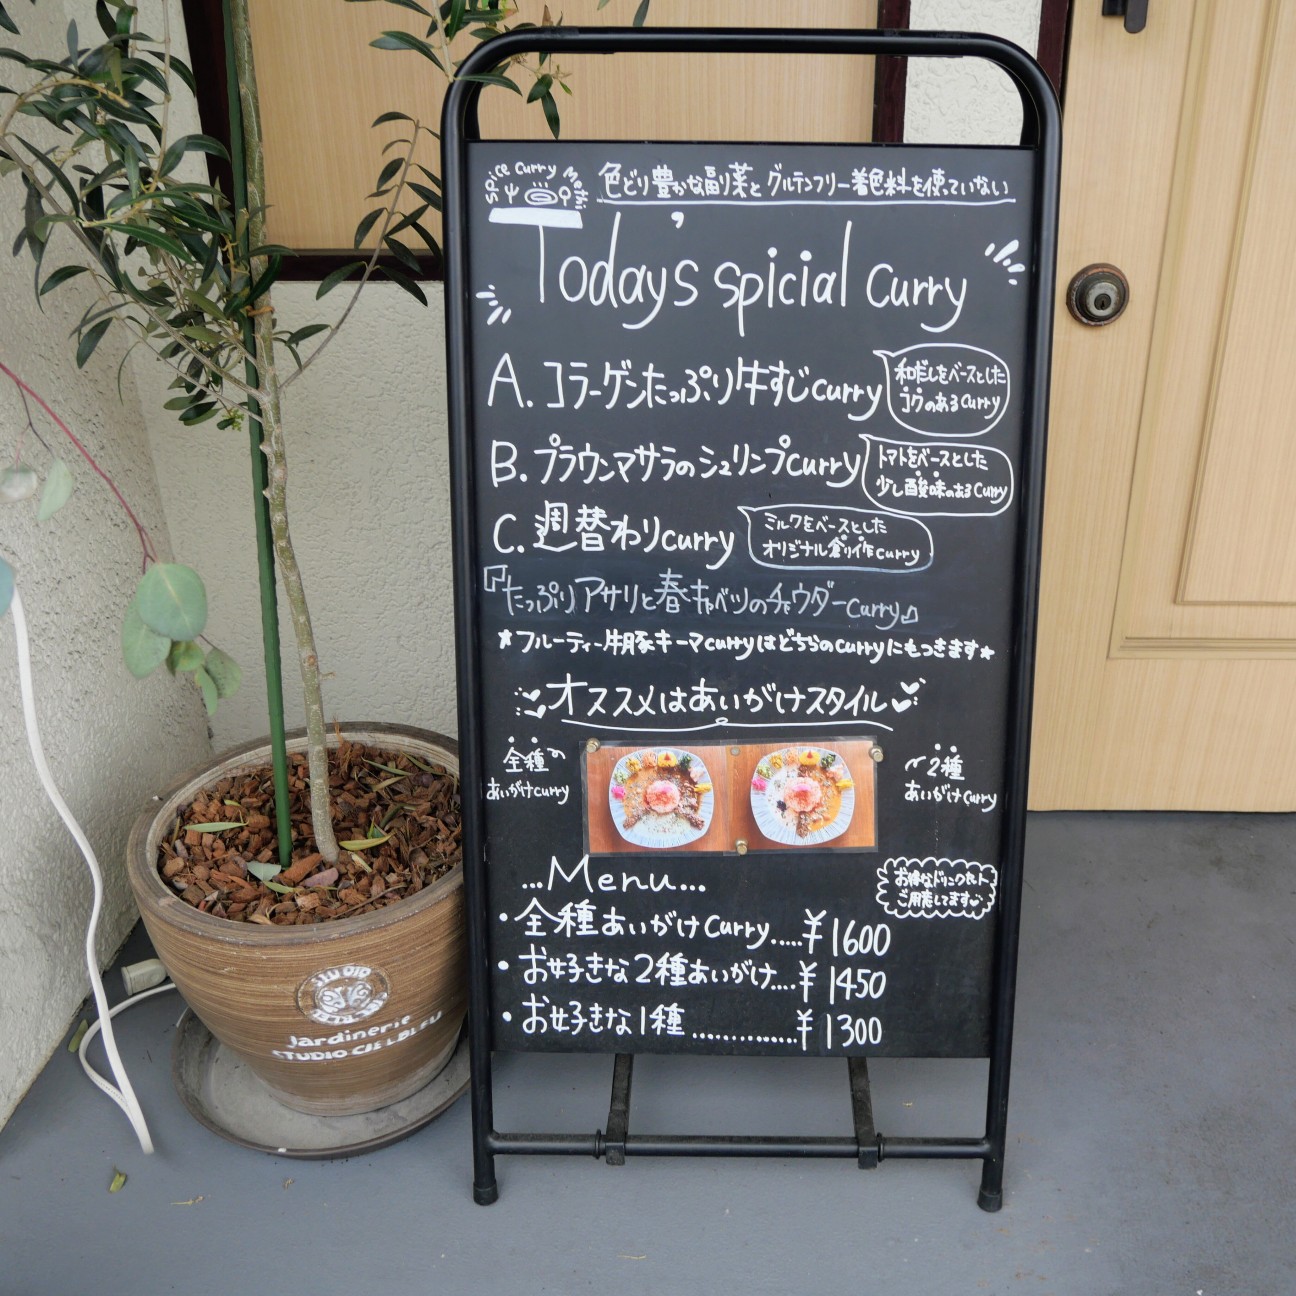 Spice Curry Methi
色どり豊かな副菜とグルテンフリー着色料を使っていない
Today's spicial curry
A. コラーゲンたっぷり牛すじcurry
和だしをベースとした
コクのあるcurry
B. ブラウンマサラのシュリンプcurry
トマトをベースとした
少し酸味のあるcurry
C. 週替わりcurry
ミルクをベースとした
オリジナル創作curry
『たっぷりアサリと春キャベツのチャウダーcurry』
★フルーティー牛豚キーマcurryはどちらのcurryにもつきます★
オススメはあいがけスタイル
全種
あいがけcurry
2種
あいがけcurry
...Menu...
お得なドリンクセット
ご用意してます
・全種あいがけcurry.....¥1600
・お好きな2種あいがけ....¥1450
・お好きな1種.............¥1300
STUDIO
Jardinerie
STUDIO CIEL BLEU